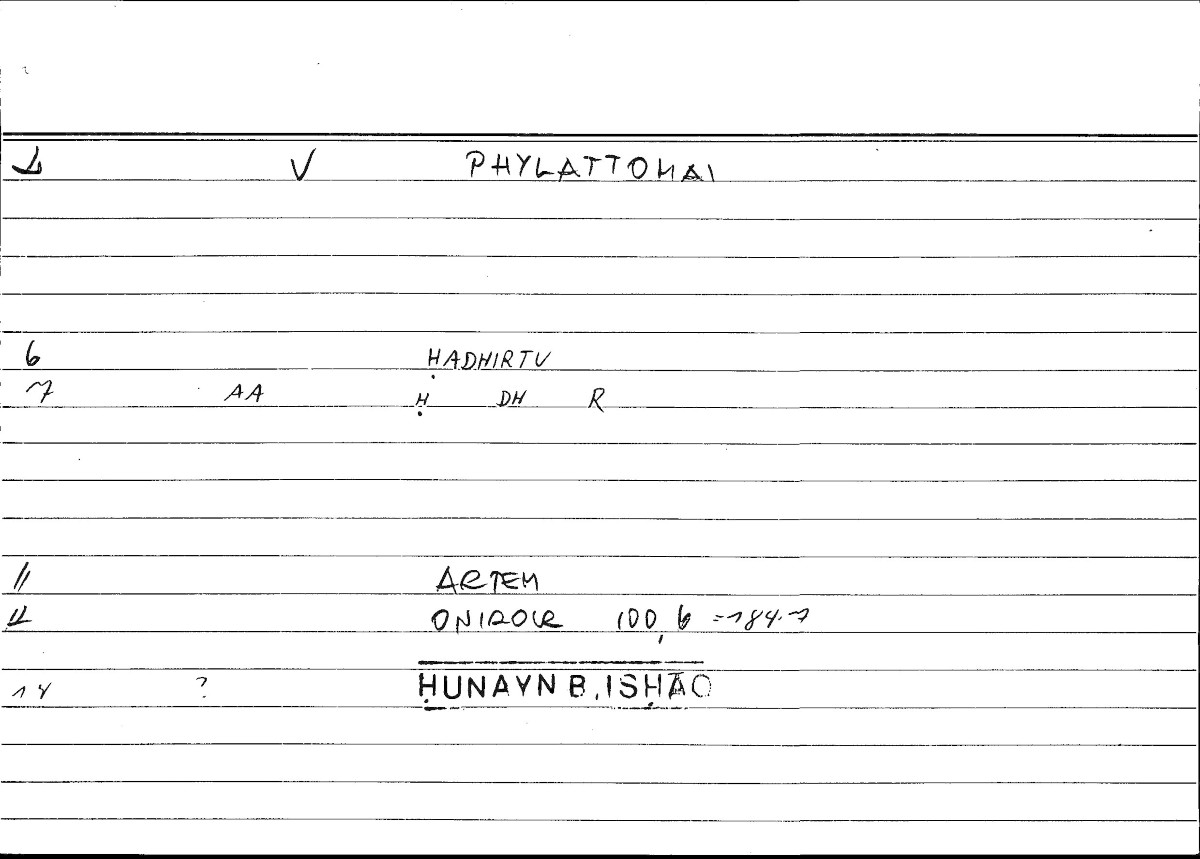 1 V PHYLATTOMAI
6 ḤADHIRTU
7 AA Ḥ DH R
11 ARTEM
12 ONIROCR 100,6 =184.7
14 ? ḤUNAYN B. ISḤĀQ